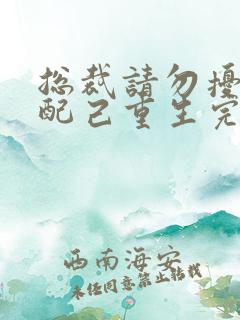 总裁請勿擾
配己重生完
西南海安
未任同意禁止转载